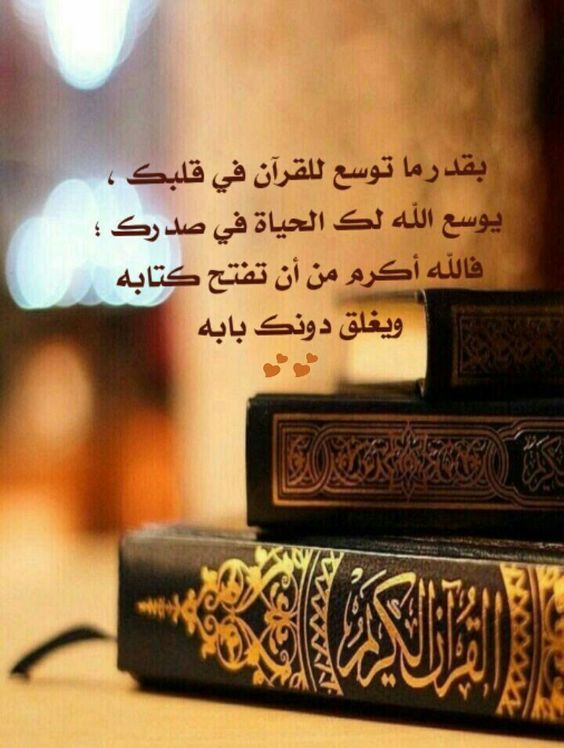 بقدر ما توسع للقرآن في قلبك ،
يوسع الله لك الحياة في صدرك ؛
فالله أكرم من أن تفتح كتابه
ويغلق دونك بابه
القرآن الكريم